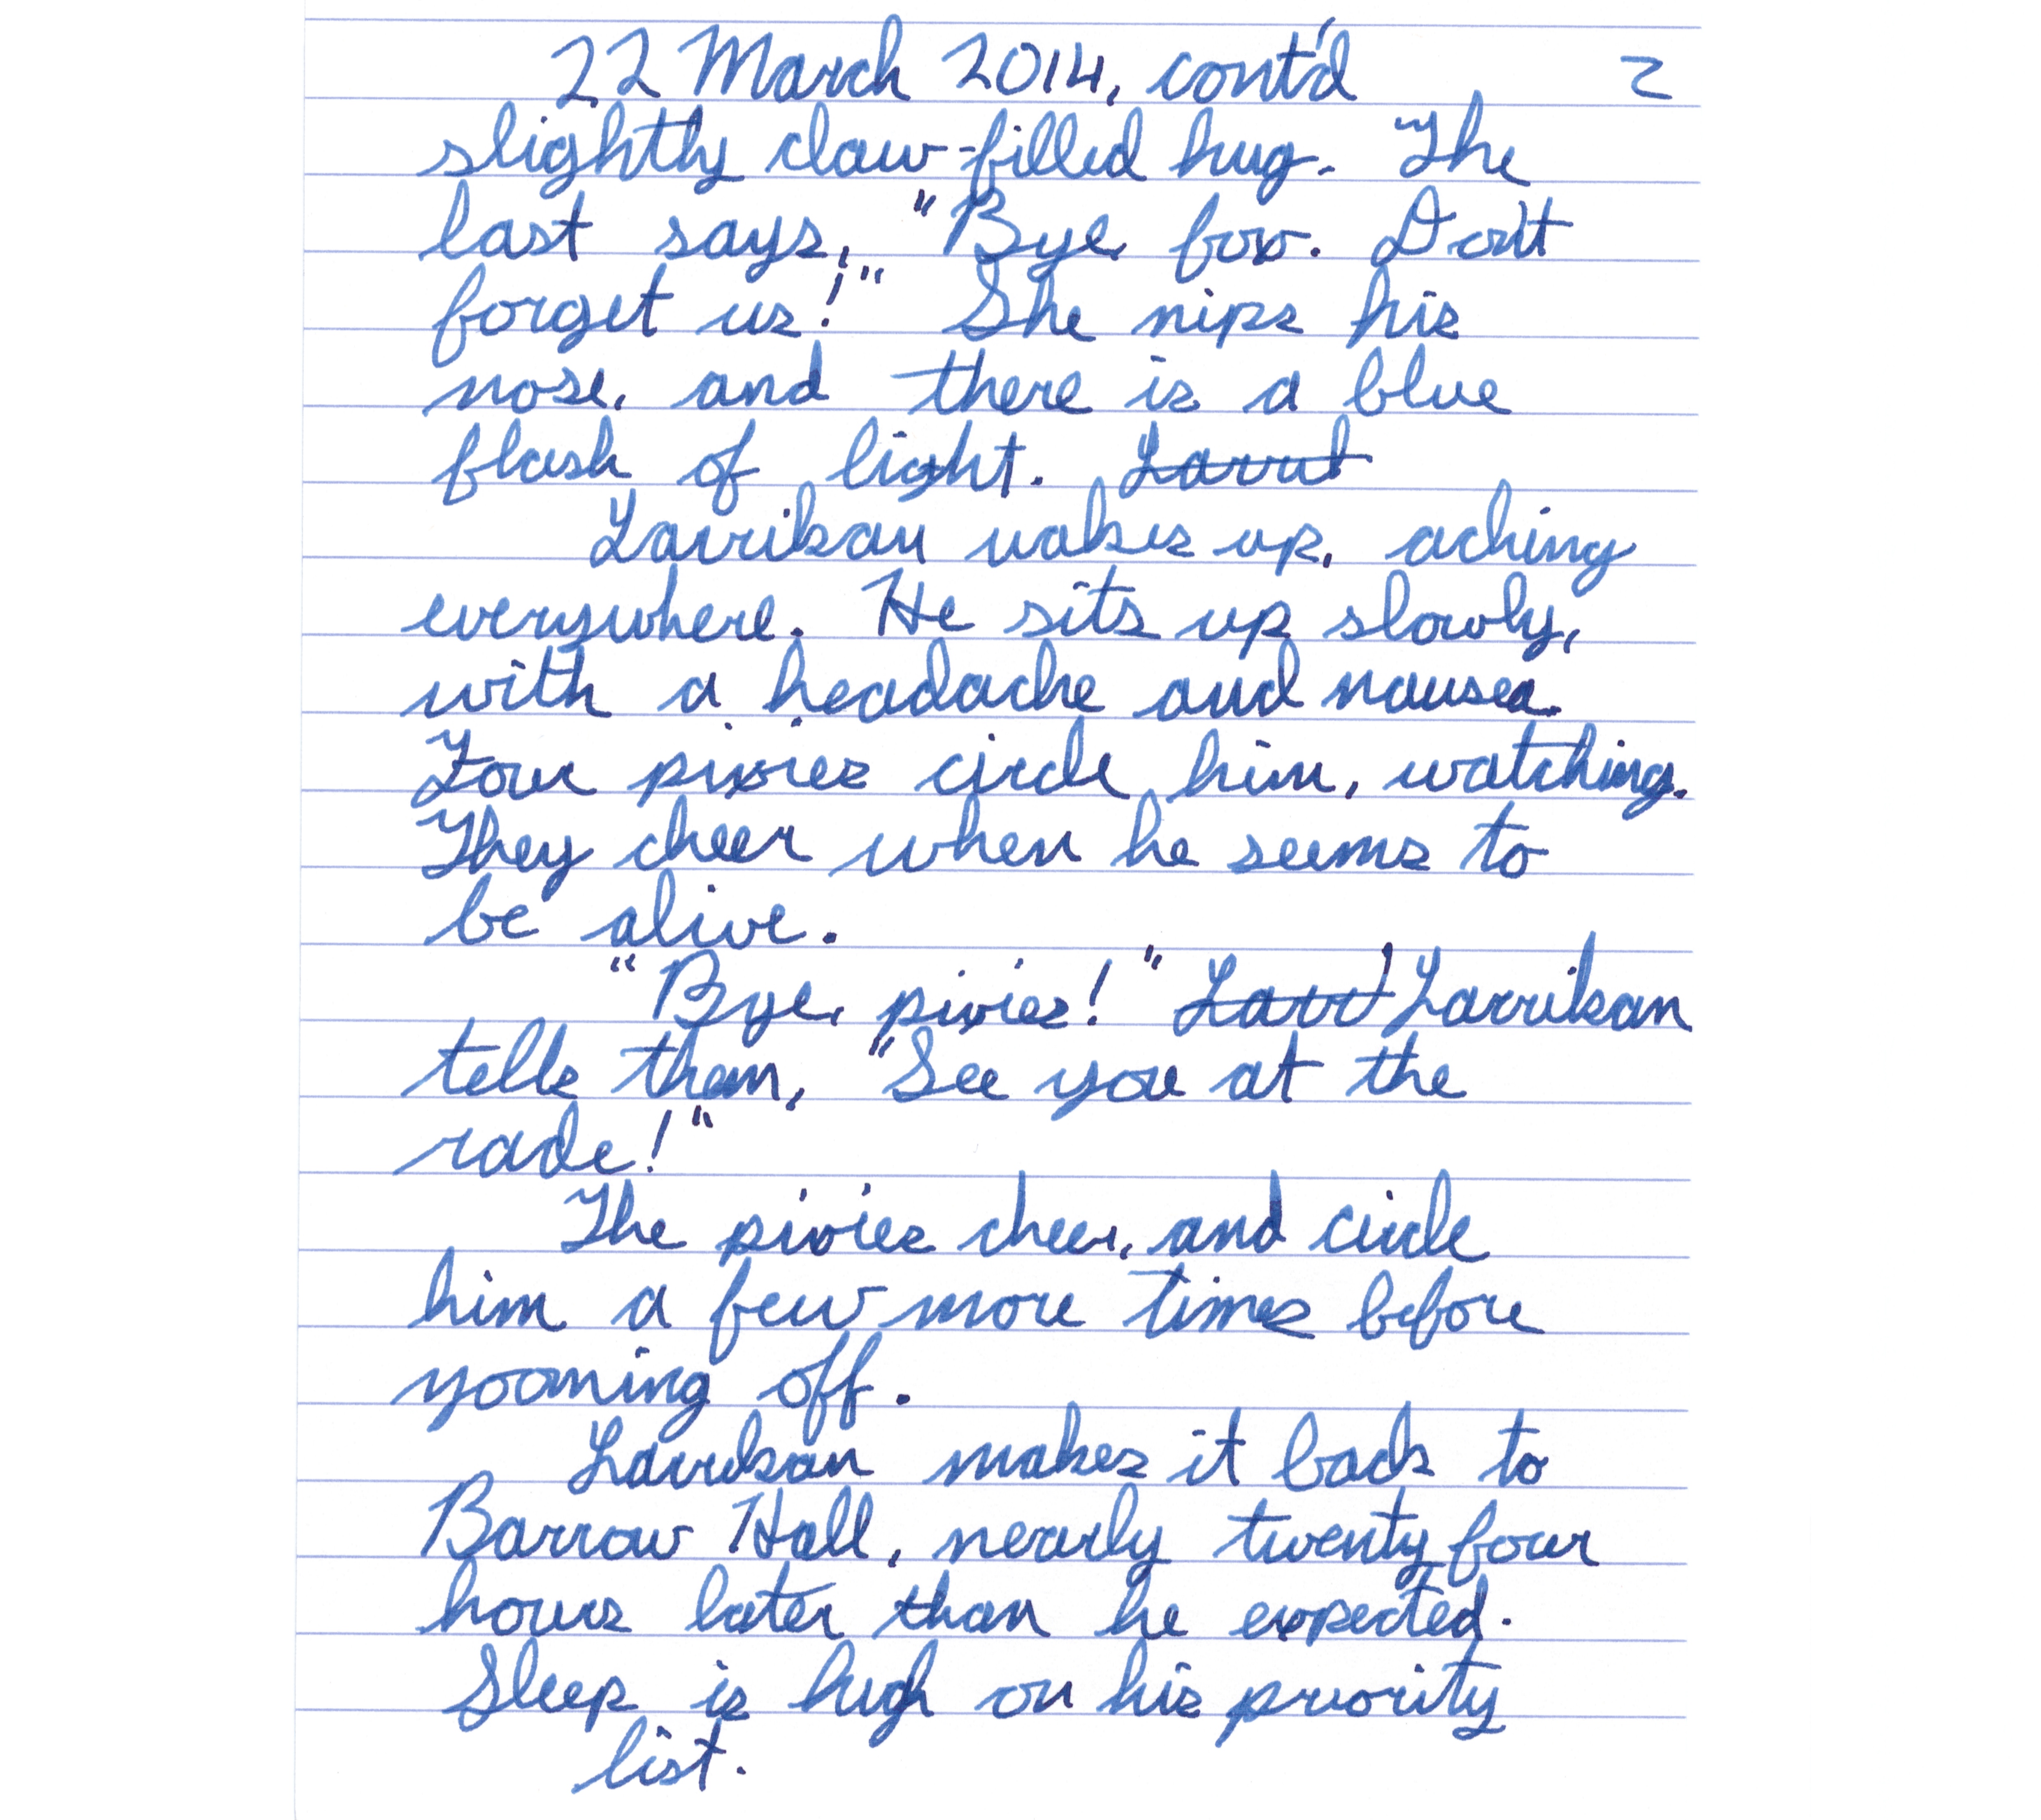 22 March 2014, cont'd 2
slightly claw-filled hug. The
last says, "Bye, fox. Don't
forget us!" She nips his
nose, and there is a blue
flash of light. Larrt
Larrikan wakes up, aching
everywhere. He sits up slowly,
with a headache and nausea.
Four pixies circle him, watching.
They cheer when he seems to
be alive.
"Bye, pixies!" Larrl Larrikan
tells them, "See you at the
rade!"
The pixies cheer, and circle
him a few more times before
yooming off.
Larrikan makes it back to
Barrow Hall, nearly twenty four
hours later than he expected.
Sleep is high on his priority
list.